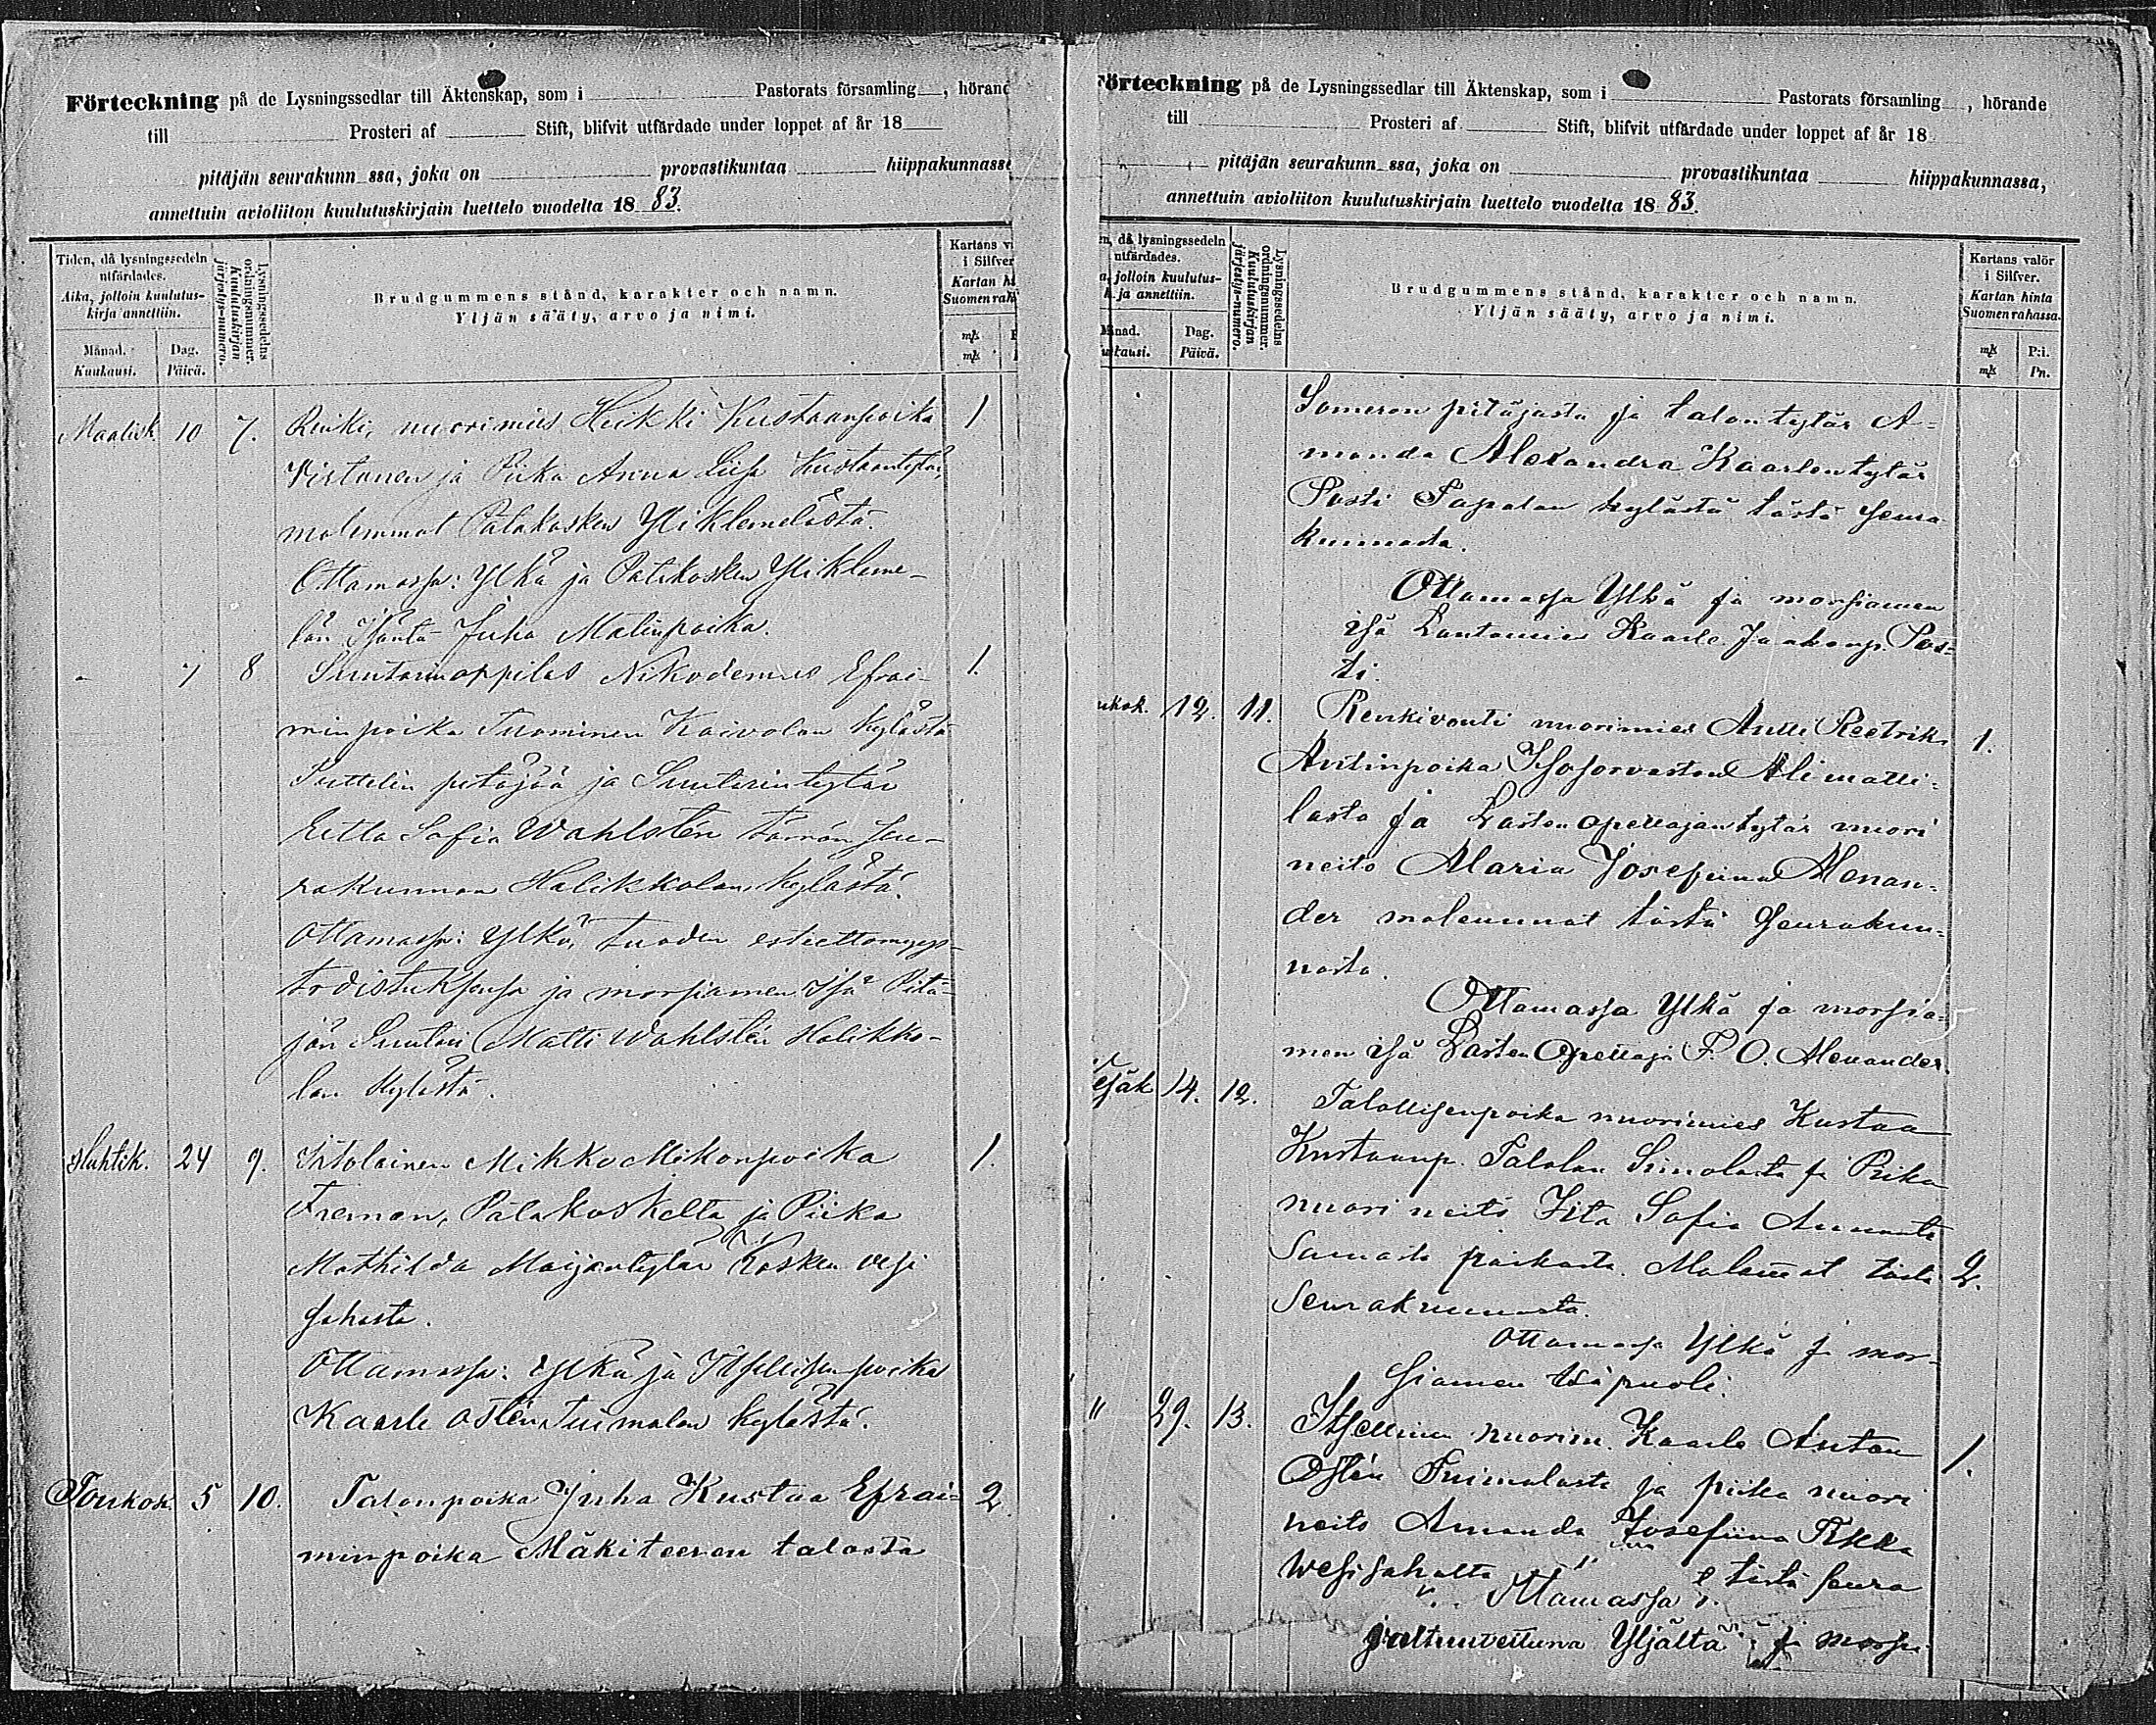 Förteckning på de Lysningssedlar till Äktenskap, som i Pastorats församling , hörand
till Prosteri af Stift, blifvit utfärdade under loppet af år 18
pitäjän seurakunn ssa, joka on provastikuntaa hiippakunnass
annettuin avioliiton kuulutuskirjain luettelo vuodelta 18 83.
Tiden, då lysningssedeln utfärdades.
Aika, jolloin kuulutus-kirja annettiin.
Månad. Kuukausi.
Dag. Päivä.
Lysningssedelns ordningsnummer.
Kuulutuskirjan järjestys-numero.
Brudgummens stånd, karakter och namn.
Yljän sääty, arvo ja nimi.
Kartans v
i Silfver
Kartan hi
Suomen rah
mk
mk
Maalisk 10 7. Renki, nuorimies Heikki Kustaanpoika 1
Virtanen ja Piika Anna Liisa Kustaantytär,
molemmat Palakosken Yliklemelästä.
Ottamassa: Ylkä ja Palakosken Ylikleme-
län Isäntä Juha Matinpoika.
" 8 Suutarinoppilas Nikodemus Efrai- 1.
minpoika Tuominen Kaivolan kylästä
Suttelin pitäjää ja Suutarintytär
Sofia Wahlstén tämän Seu-
rakunnan Halikkolan kylästä.
Ottamassa: Ylkä, tuoden esteettomyys-
todistuksensa ja morsiamen Isä Pitä-
jän Suutari Matti Wahlstén Halikko-
lan kylästä.
Huhtik. 24 9. Itölainen Mikko Mikonpoika 1.
Freman, Palakoskelta ja Piika
Mathilda Maijantytär Kosken vesi
sahasta.
Ottamassa: Ylkä ja Itsellisenpoika
Kaarle Ostén Tuimalan kylästä.
Toukok. 5 10. Talonpoika Juha Kustaa Efrai- 2
minpoika Mäkiteeren talosta
Förteckning på de Lysningssedlar till Äktenskap, som i Pastorats församling , hörande
till Prosteri af Stift, blifvit utfärdade under loppet af år 18
pitäjän seurakunn ssa, joka on provastikuntaa hiippakunnassa,
annettuin avioliiton kuulutuskirjain luettelo vuodelta 18 83.
en, då lysningssedeln utfärdades.
a, jolloin kuulutus-
ja annettiin.
Månad. kausi.
Dag. Päivä.
Lysningssedelns ordningsnummer.
Kuulutuskirjan järjestys-numero.
Brudgummens stånd, karakter och namn.
Yljän sääty, arvo ja nimi.
Kartans valör
i Silfver.
Kartan hinta
Suomen rahassa.
mk P:i.
mk Pn.
Someron pitäjästä ja talontytär A-
manda Alexandra Kaarlentytär
Posti Sapalan kylästä tästä seura
kunnasta.
Ottamassa Ylkä ja morsiamen
isä Lautamies Kaarle Jaakonp. Pos-
ti.
ukok. 12. 11. Renkivouti nuorimies Antti Reetrik 1.
Antinpoika Isosorvaston Alimatti-
lasta ja Lasten opettajan tytär nuori
neito Maria Josefiina Menan-
der molemmat tästä Seurakun-
nasta.
Ottamassa Ylkä ja morsia-
men isä Lasten Opettaja F. O. Menander.
esäk 14. 12. Talollisenpoika nuorimies Kustaa
Kustaanp. Talolan Simolasta ja Piika
nuori neito Iita Sofia
Samasta paikasta. Molemat tästä 2.
Seurakunnasta.
Ottamassa Ylkä ja mor-
siamen isäpuoli.
" 29. 13. Itsellinen nuorim. Kaarle Anton 1.
Ostén Tuimalasta ja piika nuori
neito Amanda Josefiina Pikka
Wesisahalta tästä seura
Ottamassa :
valtuutettuna Yljältä ja morsi